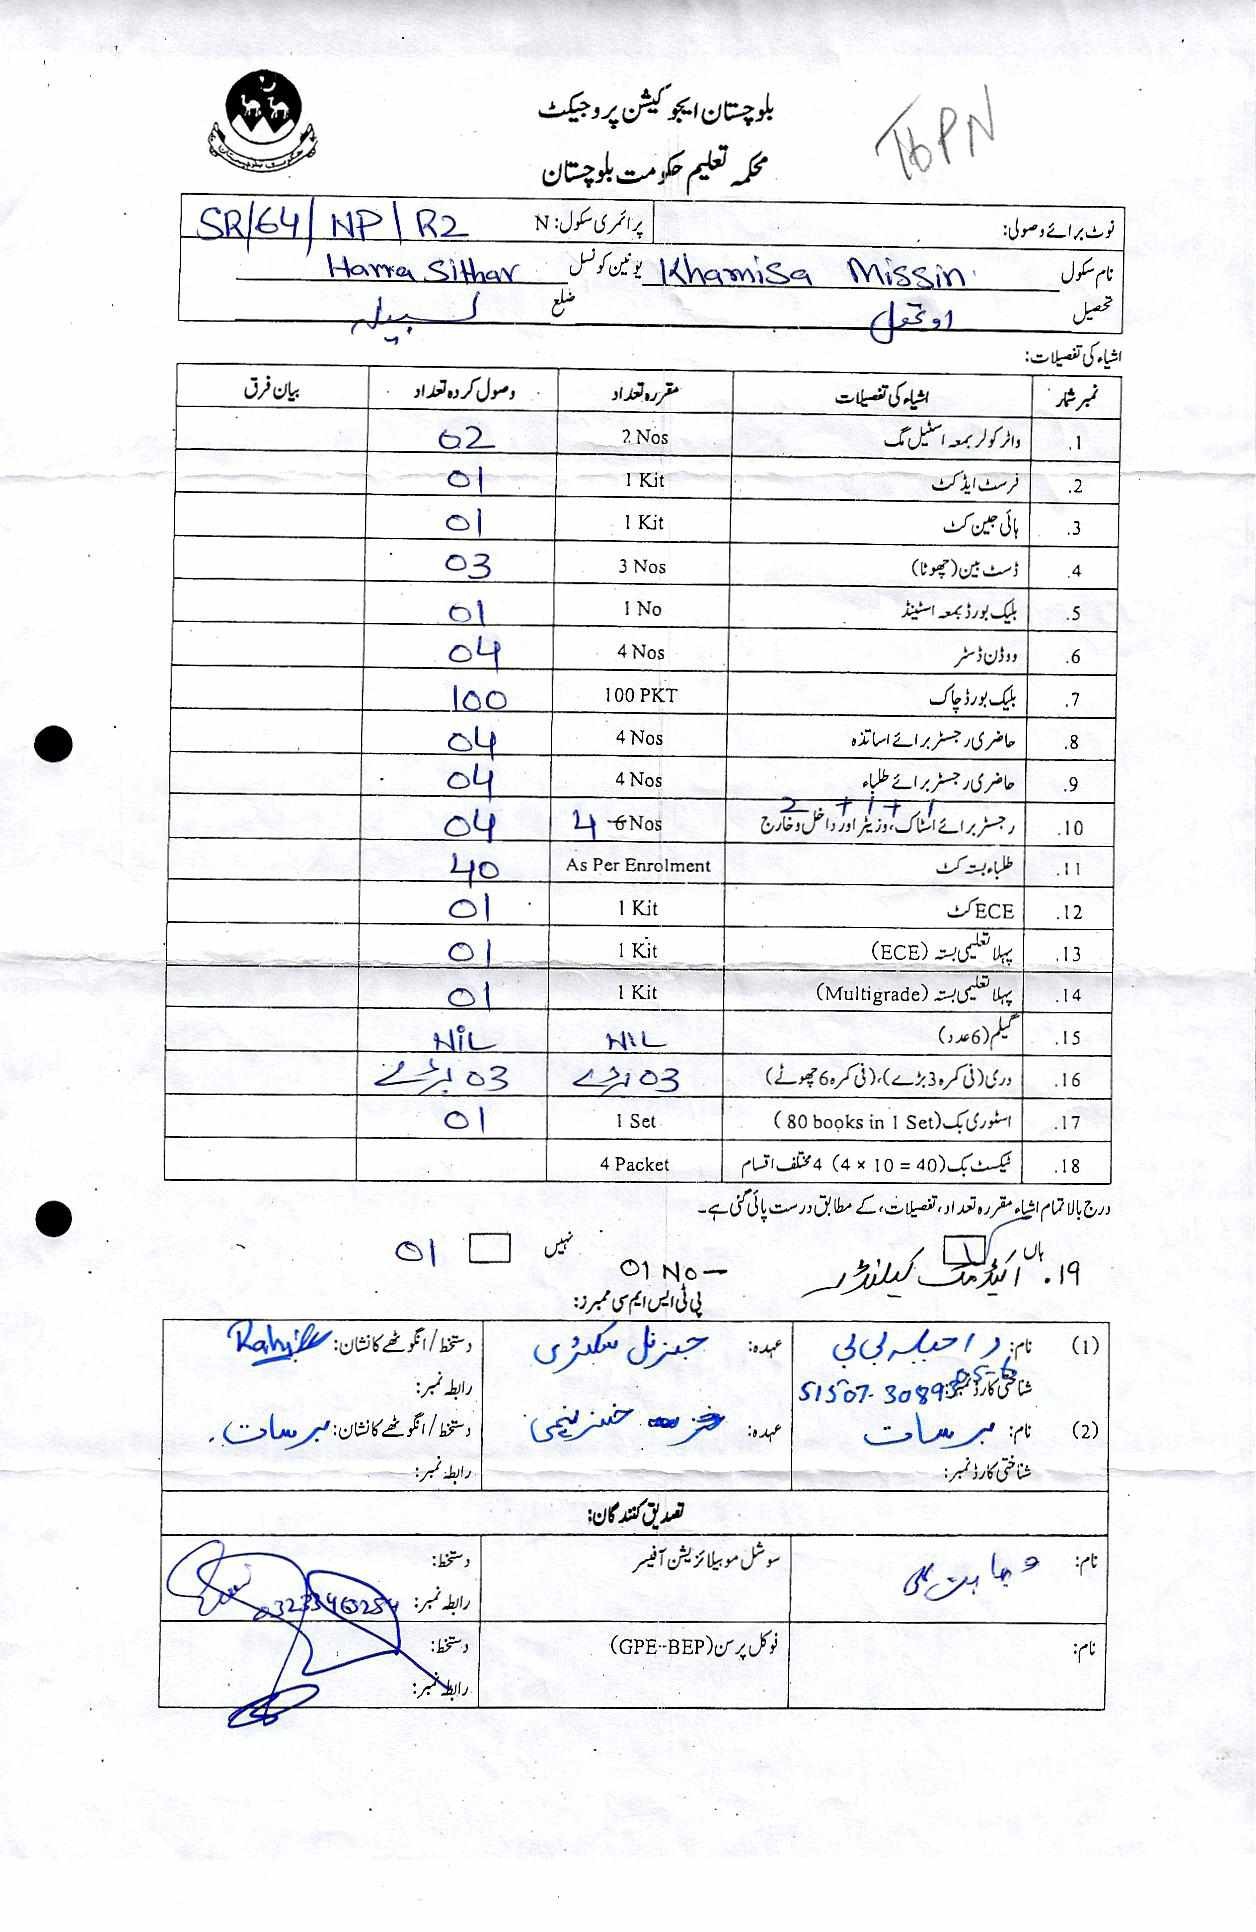 بلوچستان ایجوکیشن پروجیکٹ
T6PN
محکمہ تعلیم حکومت بلوچستان
نوٹ برائے وصولی: پرائمری سکول: N SR/64/NP/R2
نام سکول Khamisa Missin یونین کونسل Harra Sithar
تحصیل اوتھل ضلع لسبیلہ
اشیاء کی تفصیلات:
نمبر شمار اشیاء کی تفصیلات مقررہ تعداد وصول کردہ تعداد بیان فرق
1. واٹر کولر بمعہ اسٹیل مگ 2 Nos 02
2. فرسٹ ایڈ کٹ 1 Kit 01
3. ہائی جین کٹ 1 Kit 01
4. ڈسٹ بین (چھوٹا) 3 Nos 03
5. بلیک بورڈ بمعہ اسٹینڈ 1 No 01
6. ووڈن ڈسٹر 4 Nos 04
7. بلیک بورڈ چاک 100 PKT 100
8. حاضری رجسٹر برائے اساتذہ 4 Nos 04
9. حاضری رجسٹر برائے طلباء 4 Nos 04
2 + 1 + 1
10. رجسٹر برائے اسٹاک، وزیٹر اور داخل و خارج 4 6 Nos 04
11. طلباء بستہ کٹ As Per Enrolment 40
12. ECE کٹ 1 Kit 01
13. پہلا تعلیمی بستہ (ECE) 1 Kit 01
14. پہلا تعلیمی بستہ (Multigrade) 1 Kit 01
15. گیلم (6 عدد) NIL NiL
16. دری (فی کمرہ 3 بڑے)، (فی کمرہ 6 چھوٹے) 03 بڑے 03 بڑے
17. اسٹوری بک (80 books in 1 Set) 1 Set 01
18. ٹیکسٹ بک (4 × 10 = 40) 4 مختلف اقسام 4 Packet
درج بالا تمام اشیاء مقررہ تعداد، تفصیلات، کے مطابق درست پائی گئی ہے۔
ہاں نہیں
۱۹. اکیڈمک کیلنڈر 01 No 01
پی ٹی ایس ایم سی ممبرز:
(1) نام: راحیلہ بی بی عہدہ: جنرل سکٹری دستخط/انگوٹھے کا نشان: Rahila
شناختی کارڈ نمبر: رابطہ نمبر:
(2) نام: عہدہ: دستخط/انگوٹھے کا نشان:
شناختی کارڈ نمبر: رابطہ نمبر:
تصدیق کنندگان:
نام: سوشل موبیلائزیشن آفیسر دستخط:
رابطہ نمبر: 03233460254
نام: فوکل پرسن (GPE-BEP) دستخط:
رابطہ نمبر: